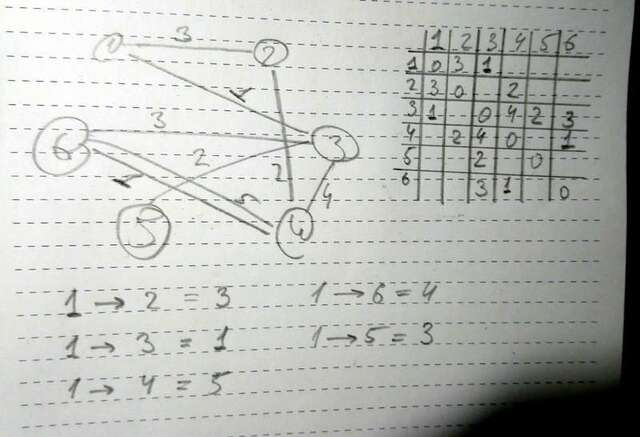 1 3 2
1
3 3
6 2
1 5 2 4
5 4
1 2 3 4 5 6
1 0 3 1
2 3 0 2
3 1 0 4 2 3
4 2 4 0 1
5 2 0
6 3 1 0
1 → 2 = 3 1 → 6 = 4
1 → 3 = 1 1 → 5 = 3
1 → 4 = 5